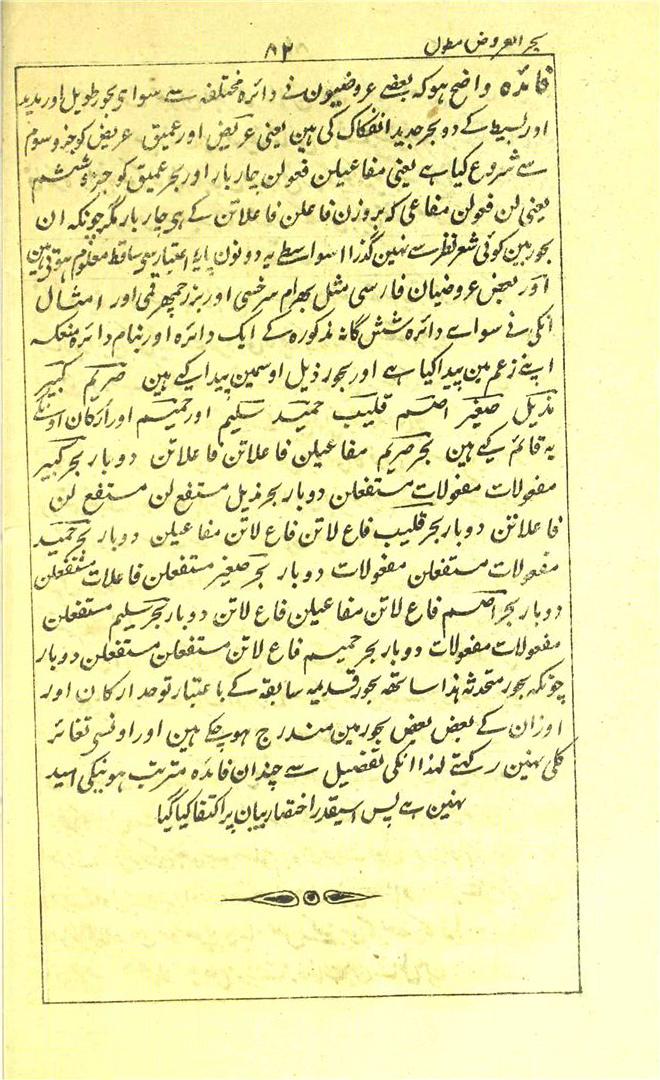 بحر العروض مطول ٨٢
فائدہ واضح ہو کہ بعضے عروضیون نے دائرہ مختلفہ سے سواے بحور طویل اور مدید
اور بسیط کے دو بحر جدید انفکاک کی ہین یعنی عریض اور عمیق عریض کو جزو سوم
سے شروع کیا ہے یعنی مفاعیلن فعولن چار بار اور بحر عمیق کو جزو ششم
یعنی لن فعولن مفاعی کہ بروزن فاعلن فاعلاتن کے ہی چار بار مگر چونکہ ان
بحور مین کوئی شعر نظر سے نہین گذرا اسواسطے یہ دونون پایۂ اعتبار سے ساقط معلوم ہوتی ہین
اور بعض عروضیان فارسی مثل بہرام سرخسی اور بزرجمہر قمی اور امثال
انکی نے سواے دائرہ شش گانہ مذکورہ کے ایک دائرہ اور بنام دائرہ منعکسہ
اپنے زعم مین پیدا کیا ہے اور بحور ذیل اوسمین پیدا کیے ہین صریم کبیر
بذیل صغیر اصم قلیب حمید سلیم اور حمیم اور ارکان اونکے
یہ قائم کیے ہین بحر صریم مفاعیلن فاعلاتن فاعلاتن دوبار بحر کبیر
مفعولات مفعولات مستفعلن دوبار بحر بذیل مستفع لن مستفع لن
فاعلاتن دوبار بحر قلیب فاع لاتن فاع لاتن مفاعیلن دوبار بحر حمید
مفعولات مستفعلن مفعولات دوبار بحر صغیر مستفعلن فاعلات مستفعلن
دوبار بحر اصم فاع لاتن مفاعیلن فاع لاتن دوبار بحر سلیم مستفعلن
مفعولات مفعولات دوبار بحر حمیم فاع لاتن مستفعلن مستفعلن دوبار
چونکہ بحور متحدثہ ہذا ساتھہ بحور قدیمہ سابقہ کے باعتبار توحد ارکان اور
اوزان کے بعض بعض بحور مین مندرج ہو چکے ہین اور اونسے تغائر
کلی نہین رکھتے لہذا انکی تفصیل سے چندان فائدہ مترتب ہونیکی امید
نہین ہے پس اسیقدر اختصار بیان پر اکتفا کیا گیا